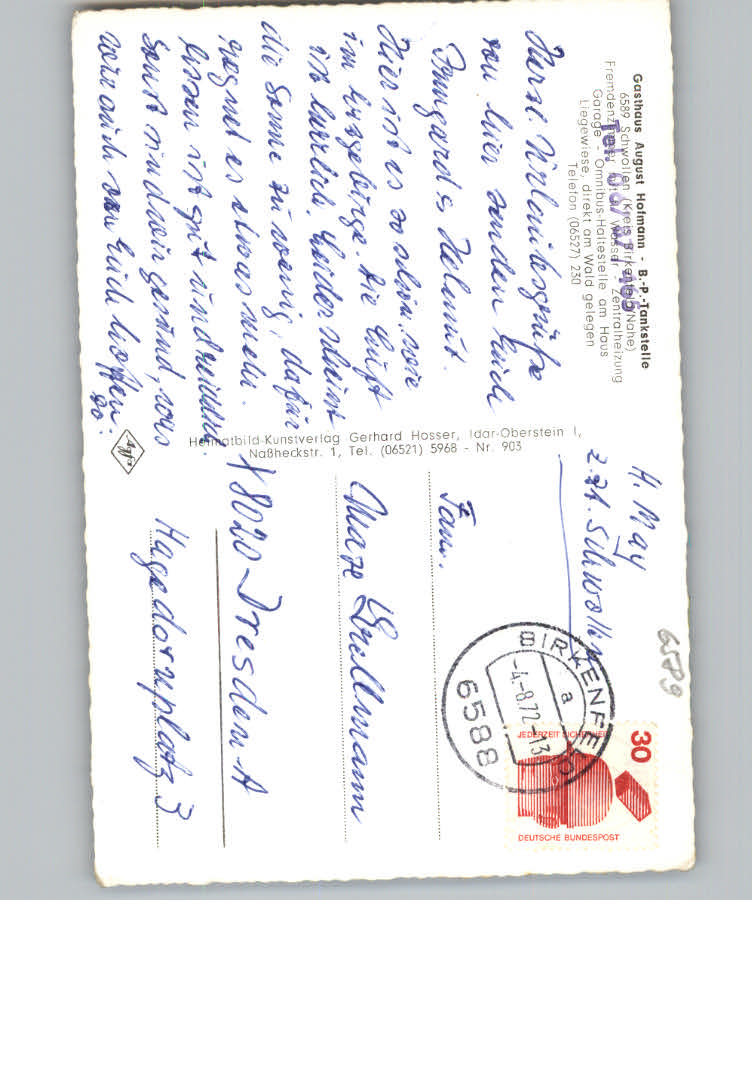 Gasthaus August Hofmann - B.-P.-Tankstelle
6589 Schwollen (Kreis Birkenfeld/Nahe)
Fremdenzimmer mit fl. Wasser - Zentralheizung
Garage - Omnibus-Haltestelle am Haus
Liegewiese, direkt am Wald gelegen
Telefon (06527) 230
Herzl. Urlaubsgrüße
von hier senden Euch
Irmgard u. Helmut.
Hier ist es so schön, wie
im Erzgebirge. Die Luft
ist herrlich. Leider scheint
die Sonne zu wenig, dafür
regnet es etwas mehr.
Essen ist gut und reichl.
Sonst sind wir gesund, was
wir auch von Euch hoffen.
Heimatbild-Kunstverlag Gerhard Hosser, Idar-Oberstein 1,
Naßheckstr. 1, Tel. (06521) 5968 - Nr. 903
Agfa
H. May
z. Zt. Schwollen
6589
BIRKENFELD
a
-4.-8.72-13
6588
30
JEDERZEIT SICHERHEIT
DEUTSCHE BUNDESPOST
Fam.
X 8020 Dresden-A
Hagedornplatz 3